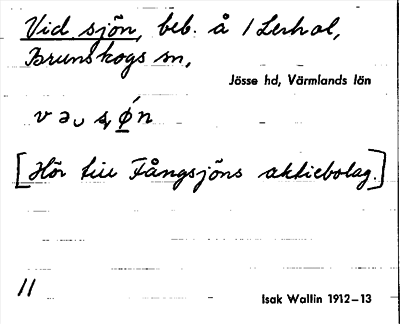 Vid sjön, beb. å 1 Lerhol,
Brunskogs sn,
Jösse hd, Värmlands län
[Hör till Fångsjöns aktiebolag.]
11
Isak Wallin 1912–13